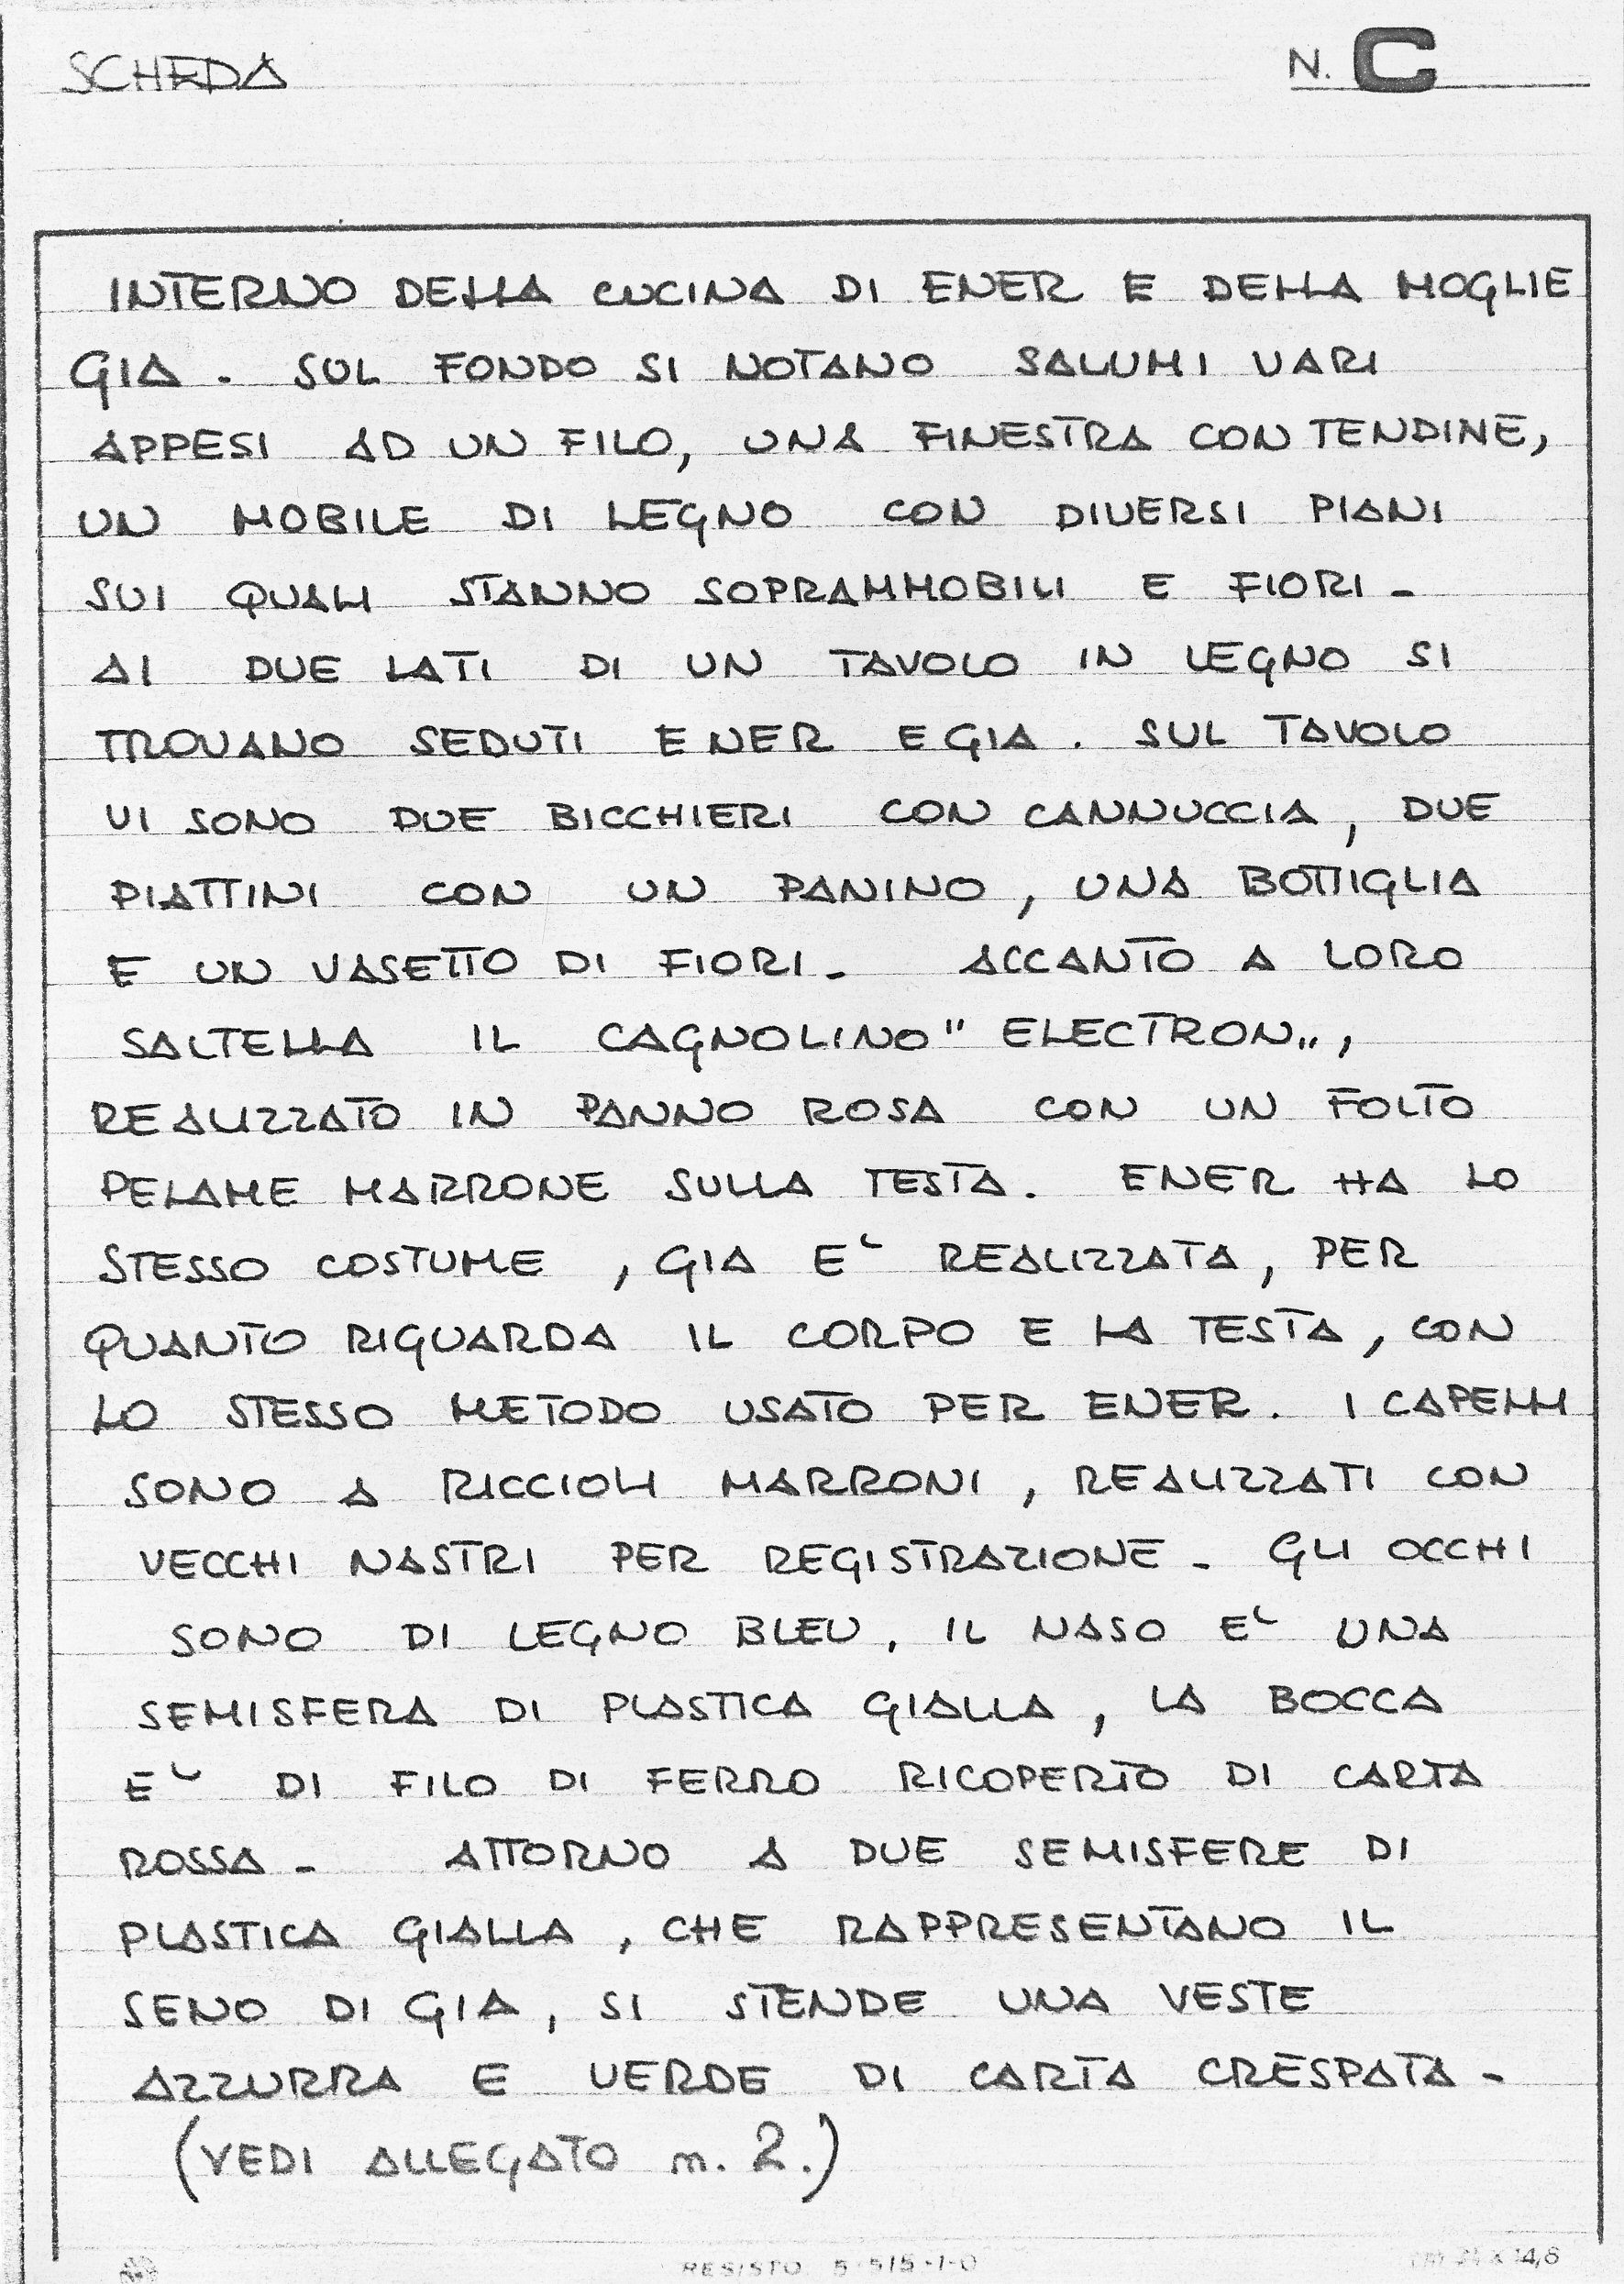 SCHEDA N. C
INTERNO DELLA CUCINA DI ENER E DELLA MOGLIE
GIA. SUL FONDO SI NOTANO SALUMI VARI
APPESI AD UN FILO, UNA FINESTRA CON TENDINE,
UN MOBILE DI LEGNO CON DIVERSI PIANI
SUI QUALI STANNO SOPRAMMOBILI E FIORI -
AI DUE LATI DI UN TAVOLO IN LEGNO SI
TROVANO SEDUTI ENER E GIA. SUL TAVOLO
VI SONO DUE BICCHIERI CON CANNUCCIA, DUE
PIATTINI CON UN PANINO, UNA BOTTIGLIA
E UN VASETTO DI FIORI - ACCANTO A LORO
SALTELLA IL CAGNOLINO "ELECTRON",
REALIZZATO IN PANNO ROSA CON UN FOLTO
PELAME MARRONE SULLA TESTA. ENER HA LO
STESSO COSTUME, GIA E` REALIZZATA, PER
QUANTO RIGUARDA IL CORPO E LA TESTA, CON
LO STESSO METODO USATO PER ENER. I CAPELLI
SONO A RICCIOLI MARRONI, REALIZZATI CON
VECCHI NASTRI PER REGISTRAZIONE - GLI OCCHI
SONO DI LEGNO BLEU, IL NASO E` UNA
SEMISFERA DI PLASTICA GIALLA, LA BOCCA
E` DI FILO DI FERRO RICOPERTO DI CARTA
ROSSA - ATTORNO A DUE SEMISFERE DI
PLASTICA GIALLA, CHE RAPPRESENTANO IL
SENO DI GIA, SI STENDE UNA VESTE
AZZURRA E VERDE DI CARTA CRESPATA -
(VEDI ALLEGATO n. 2.)
RESISTO 5-515-1-0